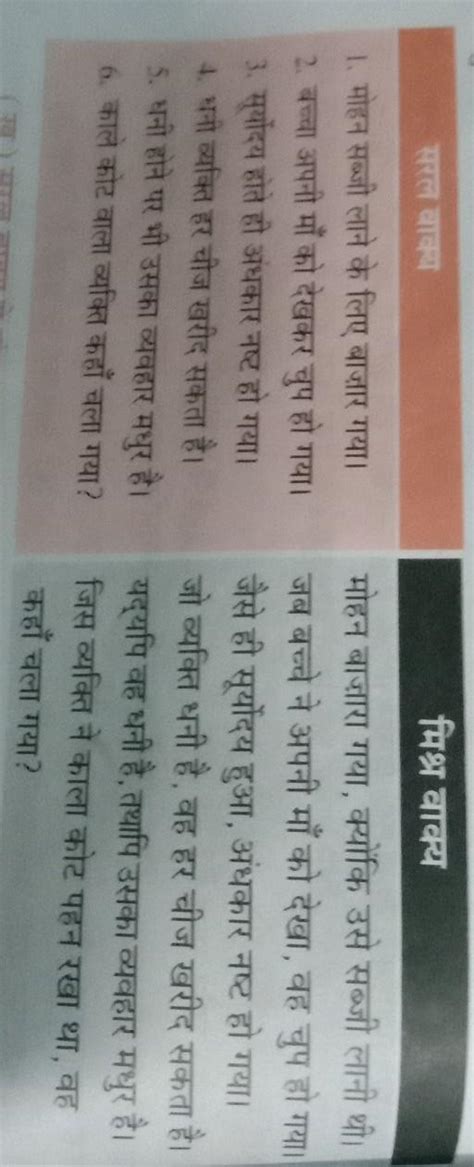 सरल वाक्य
मिश्र वाक्य
1. मोहन सब्जी लाने के लिए बाज़ार गया।
मोहन बाज़ार गया, क्योंकि उसे सब्जी लानी थी।
2. बच्चा अपनी माँ को देखकर चुप हो गया।
जब बच्चे ने अपनी माँ को देखा, वह चुप हो गया।
3. सूर्योदय होते ही अंधकार नष्ट हो गया।
जैसे ही सूर्योदय हुआ, अंधकार नष्ट हो गया।
4. धनी व्यक्ति हर चीज खरीद सकता है।
जो व्यक्ति धनी है, वह हर चीज खरीद सकता है।
5. धनी होने पर भी उसका व्यवहार मधुर है।
यद्यपि वह धनी है, तथापि उसका व्यवहार मधुर है।
6. काले कोट वाला व्यक्ति कहाँ चला गया?
जिस व्यक्ति ने काला कोट पहन रखा था, वह
कहाँ चला गया?